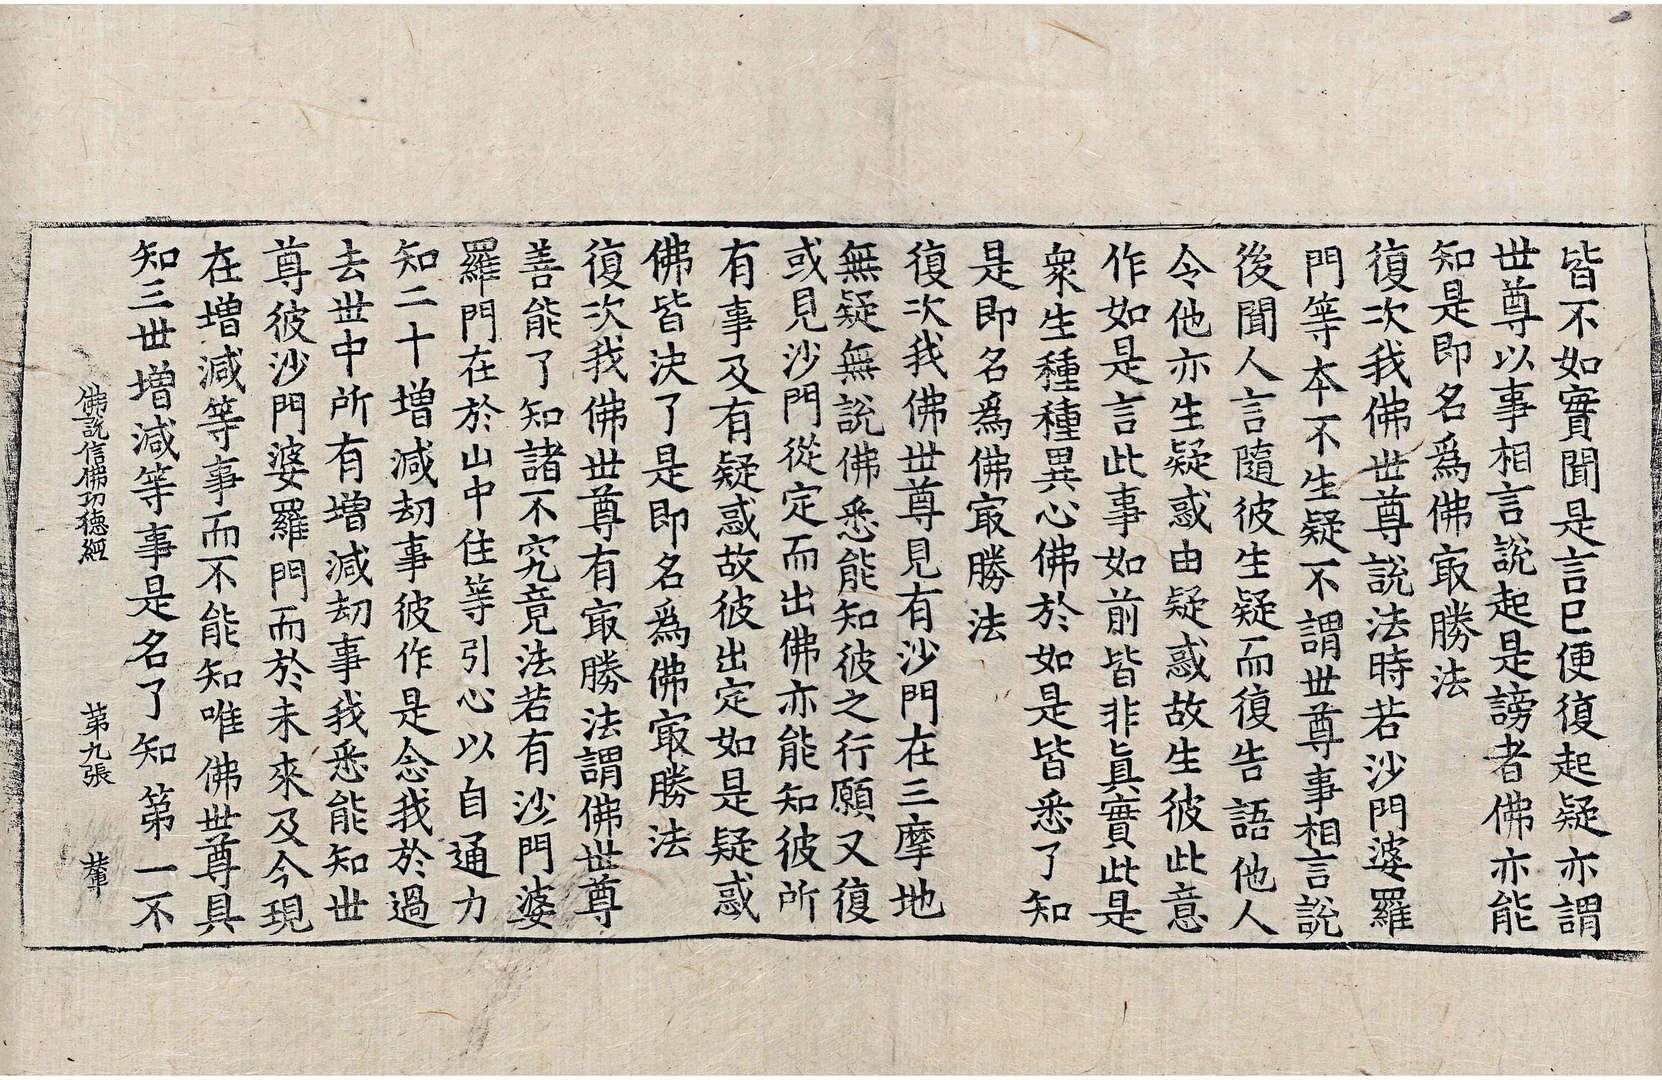 皆不如實聞是言已便復起疑亦謂
世尊以事相言說起是謗者佛亦能
知是即名爲佛㝡勝法
復次我佛世尊說法時若沙門婆羅
門等本不生疑不謂世尊事相言說
後聞人言隨彼生疑而復告語他人
令他亦生疑惑由疑惑故生彼此意
作如是言此事如前皆非眞實此是
衆生種種異心佛於如是皆悉了知
是即名爲佛㝡勝法
復次我佛世尊見有沙門在三摩地
無疑無說佛悉能知彼之行願又復
或見沙門從定而出佛亦能知彼所
有事及有疑惑故彼出定如是疑惑
佛皆決了是即名爲佛㝡勝法
復次我佛世尊有㝡勝法謂佛世尊
善能了知諸不究竟法若有沙門婆
羅門在於山中住等引心以自通力
知二十增減劫事彼作是念我於過
去世中所有增減劫事我悉能知世
尊彼沙門婆羅門而於未來及今現
在增減等事而不能知唯佛世尊具
知三世增減等事是名了知第一不
佛說信佛功德經 第九張 輦